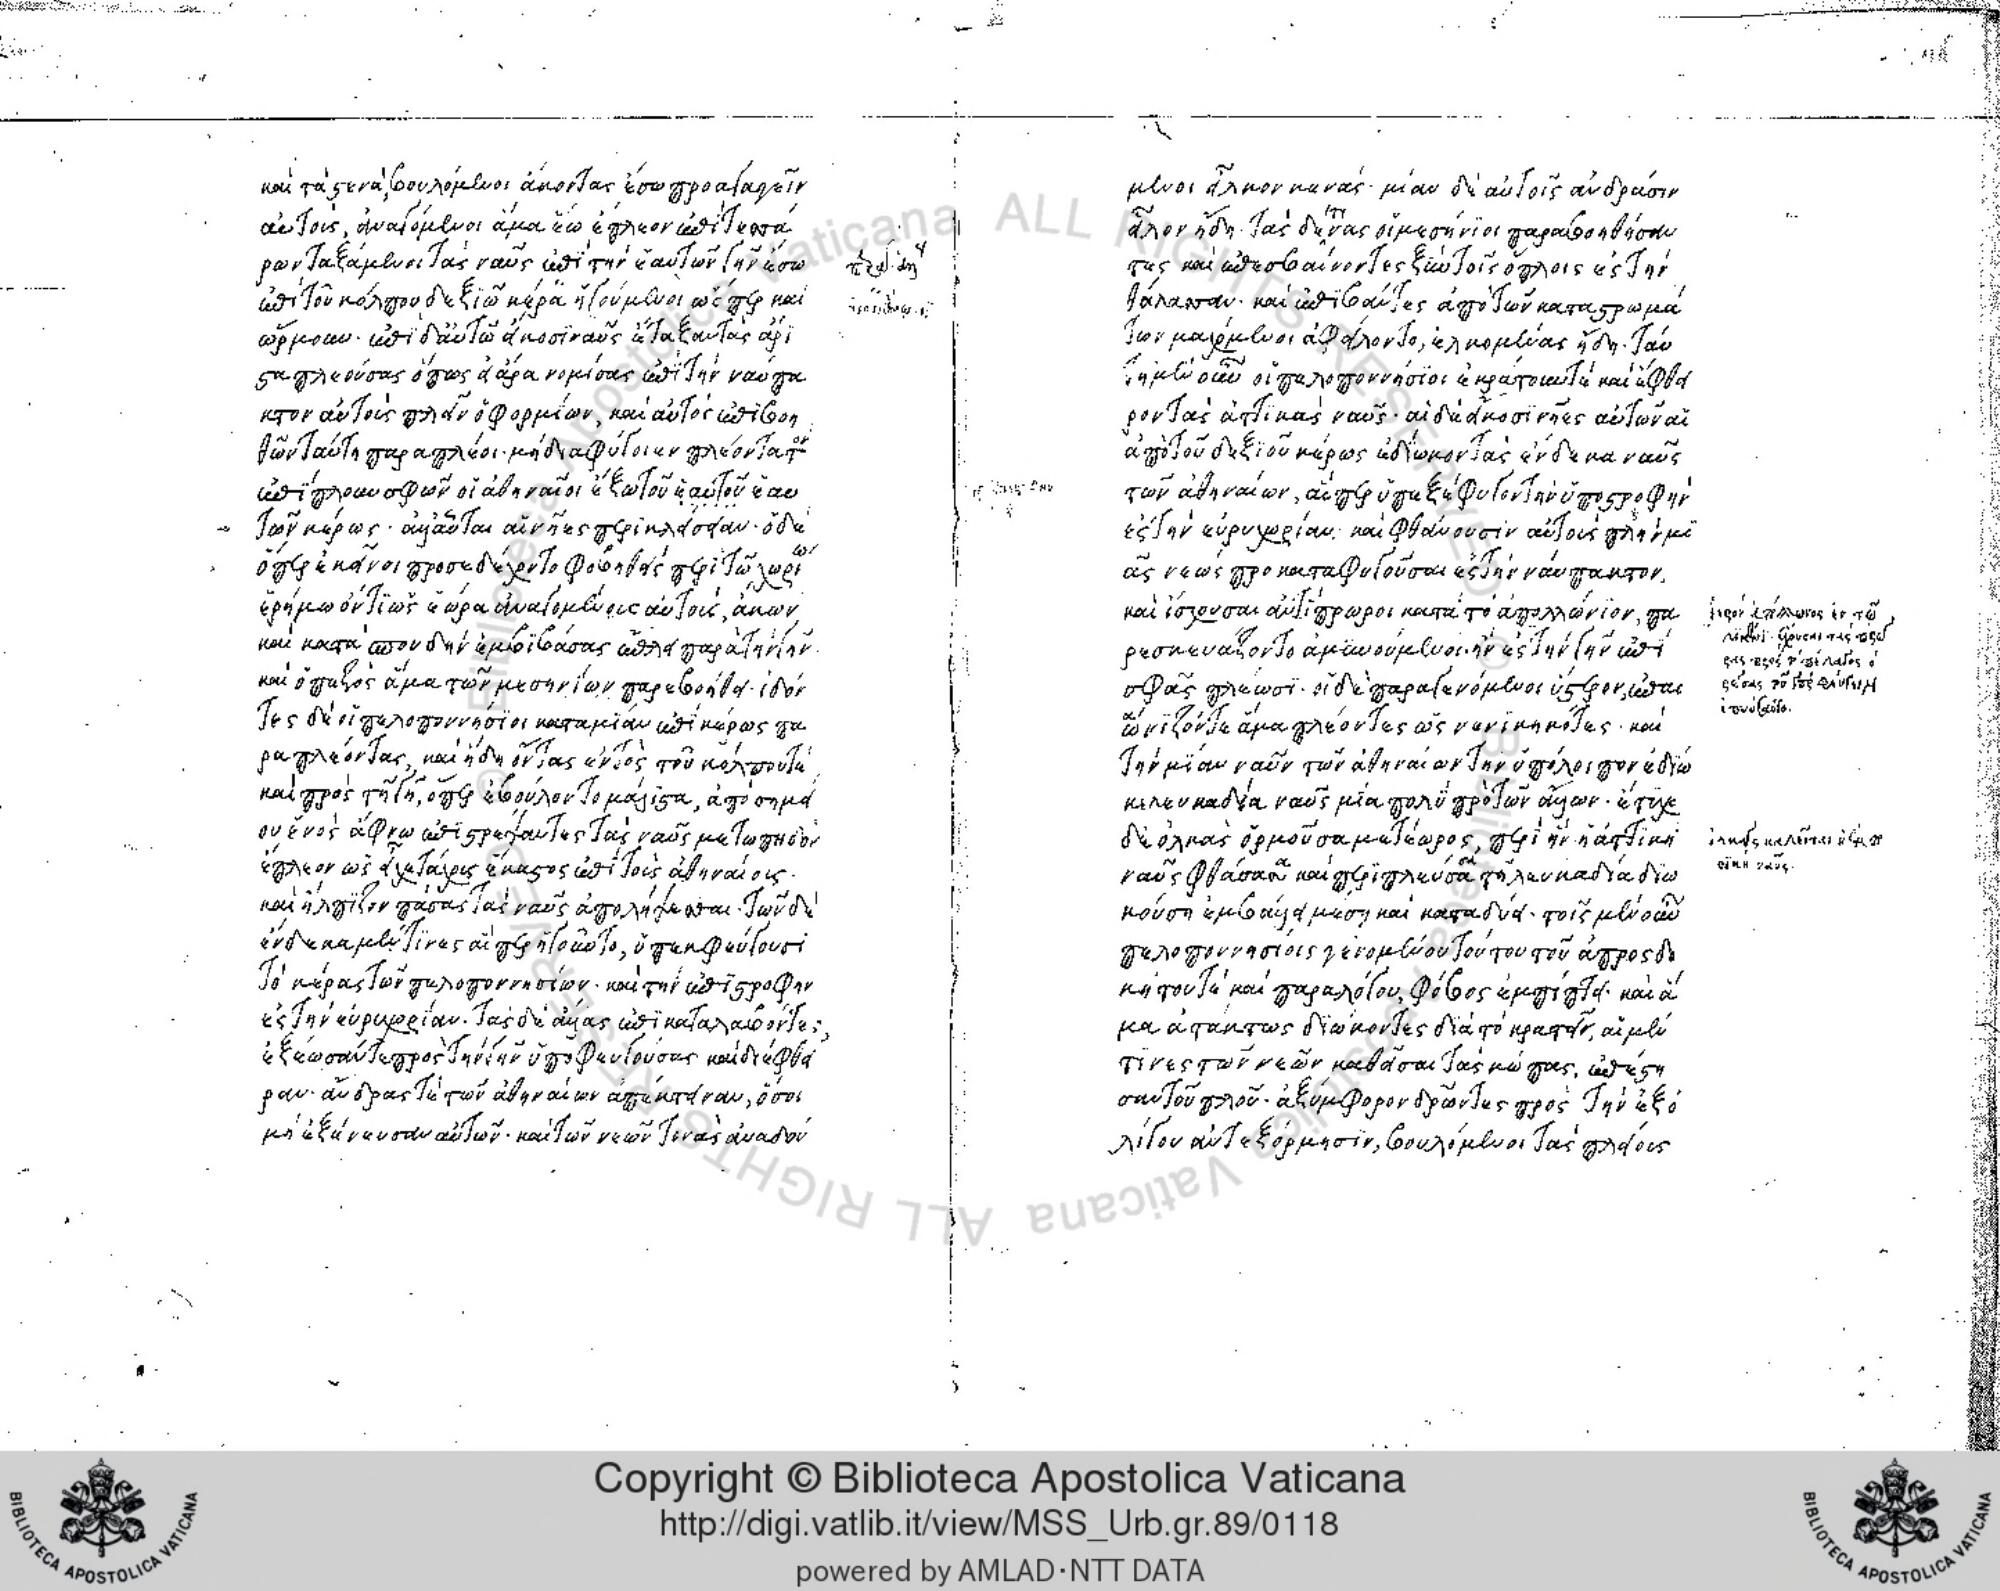 καὶ τὰ στενὰ, βουλόμενοι ἄκοντας ἔσω προαγαγεῖν
αὐτοὺς, ἀναγόμενοι ἅμα ἕω ἔπλεον ἐπὶ τεσσά
ρων ταξάμενοι τὰς ναῦς ἐπὶ τὴν ἑαυτῶν γῆν ἔσω
ἐπὶ τοῦ κόλπου δεξιῷ κέρα ἡγούμενοι ὥσπερ καὶ
ὥρμουν· ἐπὶ δ' αὐτῷ εἴκοσι ναῦς ἔταξαν τὰς ἄρι
στα πλεούσας ὅπως εἰ ἄρα νομίσας ἐπὶ τὴν ναύπα
κτον αὐτοὺς πλεῖν ὁ φορμίων, καὶ αὐτὸς ἐπιβοη
θῶν ταύτη παραπλέοι· μὴ διαφύγοιεν πλέοντα τὸν
ἐπίπλουν σφῶν οἱ ἀθηναῖοι ἔξω τοῦ ἑαυτοῦ ἑαυ
τῶν κέρως· ἀλλ' αὗται αἱ νῆες περικλείσειαν· ὁ δὲ
ὅπερ ἐκεῖνοι προσεδέχοντο φοβηθεὶς περὶ τῷ χωρίῳ
ἐρήμῳ ὄντι ὡς ἑώρα ἀναγομένους αὐτοὺς, ἄκων
καὶ κατὰ σπουδὴν ἐμβιβάσας ἔπλει παρὰ τὴν γῆν·
καὶ ὁ πεζὸς ἅμα τῶν μεσηνίων παρεβοήθει· ἰδόν
τες δὲ οἱ πελοποννήσιοι κατα μίαν ἐπὶ κέρως πα
ραπλέοντας, καὶ ἤδη ὄντας ἐντὸς τοῦ κόλπου τὲ
καὶ πρὸς τῇ γῇ, ὅπερ ἐβούλοντο μάλιστα, ἀπὸ σημεί
ου ἑνὸς ἄφνω ἐπιστρέψαντες τὰς ναῦς μετωπηδὸν
ἔπλεον ὡς εἶχε τάχους ἕκαστος ἐπὶ τοὺς ἀθηναίους·
καὶ ἤλπιζον πάσας τὰς ναῦς ἀπολήψεσθαι· τῶν δὲ
ἕνδεκα μέν τινες αἵπερ ἡγοῦντο, ὑπεκφεύγουσι
τὸ κέρας τῶν πελοποννησίων· καὶ τὴν ἐπιστροφὴν
ἐς τὴν εὐρυχωρίαν· τὰς δὲ ἄλλας ἐπικαταλαβόντες,
ἐξέωσάν τε πρὸς τὴν γῆν ὑποφευγούσας καὶ διέφθει
ραν· ἄνδρας τὲ τῶν ἀθηναίων ἀπέκτειναν, ὅσοι
μὴ ἐξένευσαν αὐτῶν· καὶ τῶν νεῶν τινὰς ἀναδού
μενοι εἷλκον κενάς· μίαν δὲ αὐτοῖς ἀνδράσιν
εἷλον ἤδη· τὰς δέ τινας οἱ μεσήνιοι παραβοηθήσαν
τες καὶ ἐπεσβαίνοντες ξὺν τοῖς ὅπλοις ἐς τὴν
θάλασσαν· καὶ ἐπιβάντες ἀπὸ τῶν καταστρωμά
των μαχόμενοι ἀφείλοντο, ἑλκομένας ἤδη· ταύ
τη μὲν οὖν οἱ πελοποννήσιοι ἐκράτουν τὲ καὶ ἔφθει
ρον τὰς ἀττικὰς ναῦς· αἱ δὲ εἴκοσι νῆες αὐτῶν αἱ
ἀπὸ τοῦ δεξιοῦ κέρως ἐδίωκον τὰς ἕνδεκα ναῦς
τῶν ἀθηναίων, αἵπερ ὑπεξέφυγον τὴν ὑποστροφὴν
ἐς τὴν εὐρυχωρίαν· καὶ φθάνουσιν αὐτοὺς πλὴν μι
ᾶς νεὼς προκαταφυγοῦσαι ἐς τὴν ναύπακτον,
καὶ ἴσχουσαι ἀντίπρωροι κατὰ τὸ ἀπολλώνιον, πα
ρεσκευάζοντο ἀμυνούμενοι· ἢν ἐς τὴν γῆν ἐπὶ
σφᾶς πλέωσι· οἱ δὲ παραγενόμενοι ὕστερον, ἐπαι
ώνιζόν τε ἅμα πλέοντες ὡς νενικηκότες· καὶ
τὴν μίαν ναῦν τῶν ἀθηναίων τὴν ὑπόλοιπον ἐδίω
κε λευκαδία ναῦς μία πολὺ πρὸ τῶν ἄλλων· ἔτυχε
δὲ ὁλκὰς ὁρμοῦσα μετέωρος, περὶ ἣν ἡ ἀττικὴ
ναῦς φθάσασα καὶ περιπλεύσασα τῇ λευκαδία διω
κούση ἐμβάλλει μέση καὶ καταδύει· τοῖς μὲν οὖν
πελοποννησίοις γενομένου τούτου τοῦ ἀπροσδο
κήτου τὲ καὶ παραλόγου, φόβος ἐμπίπτει· καὶ ἅ
μα ἀτάκτως διώκοντες διὰ τὸ κρατεῖν, αἱ μέν
τινες τῶν νεῶν καθεῖσαι τὰς κώπας, ἐπέστη
σαν τοῦ πλοῦ· ἀξύμφορον δρῶντες πρὸς τὴν ἐξ ὀ
λίγου ἀντεξόρμησιν, βουλόμενοι τὰς πλείους
ὁλκὰς καλεῖται ἡ ἐμπο
ρικὴ ναῦς.
Biblioteca Apostolica Vaticana ALL RIGHTS RESERVED
Copyright © Biblioteca Apostolica Vaticana
http://digi.vatlib.it/view/MSS_Urb.gr.89/0118
powered by AMLAD·NTT DATA
BIBLIOTECA APOSTOLICA VATICANA
BIBLIOTECA APOSTOLICA VATICANA